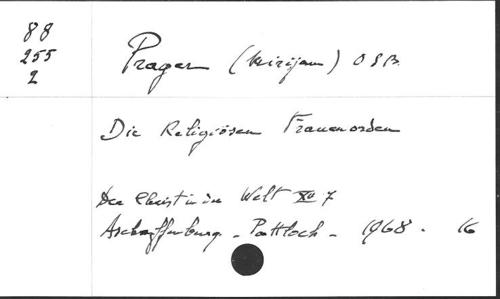 88
255
2
Prager (Mirijam) OSB.
Die Religiösen Frauenorden
Der Christ in der Welt XII 7
Aschaffenburg - Pattloch - 1968. 16